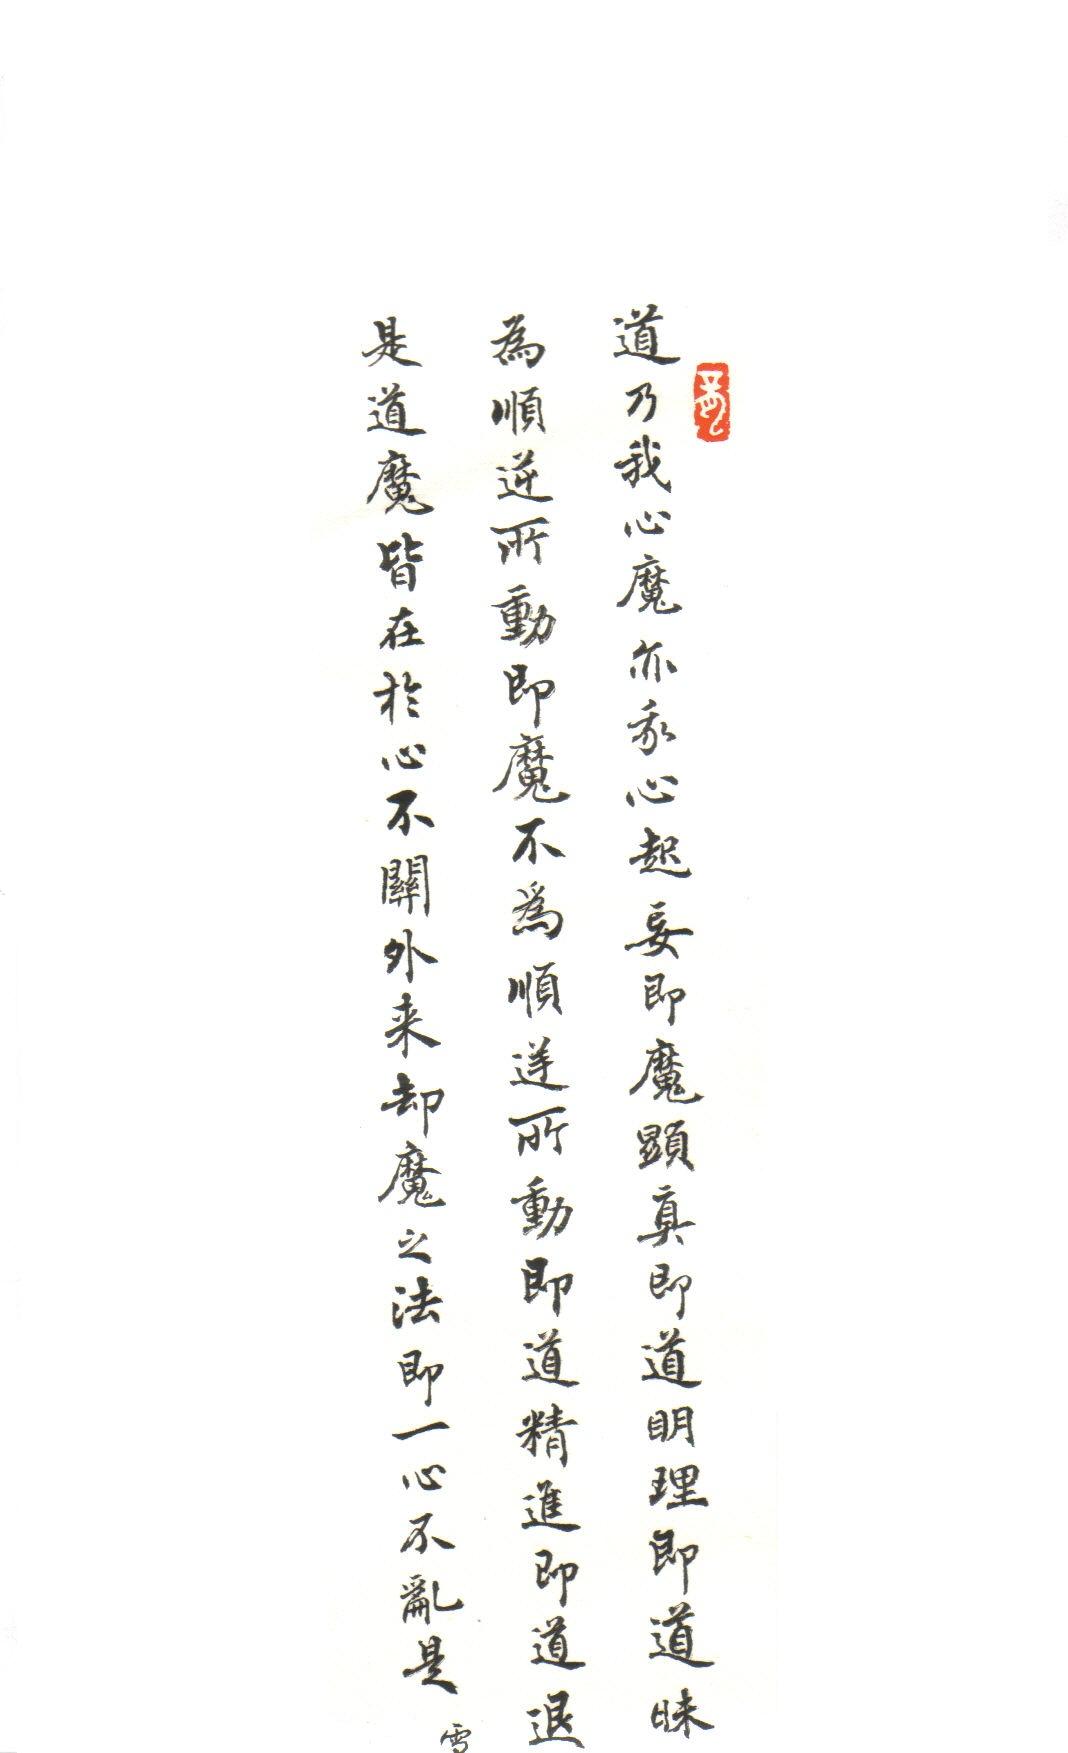 道乃我心魔亦我心起妄即魔顯真即道明理即道昧
為順逆所動即魔不為順逆所動即道精進即道退
是道魔皆在於心不關外来却魔之法即一心不亂是
雪